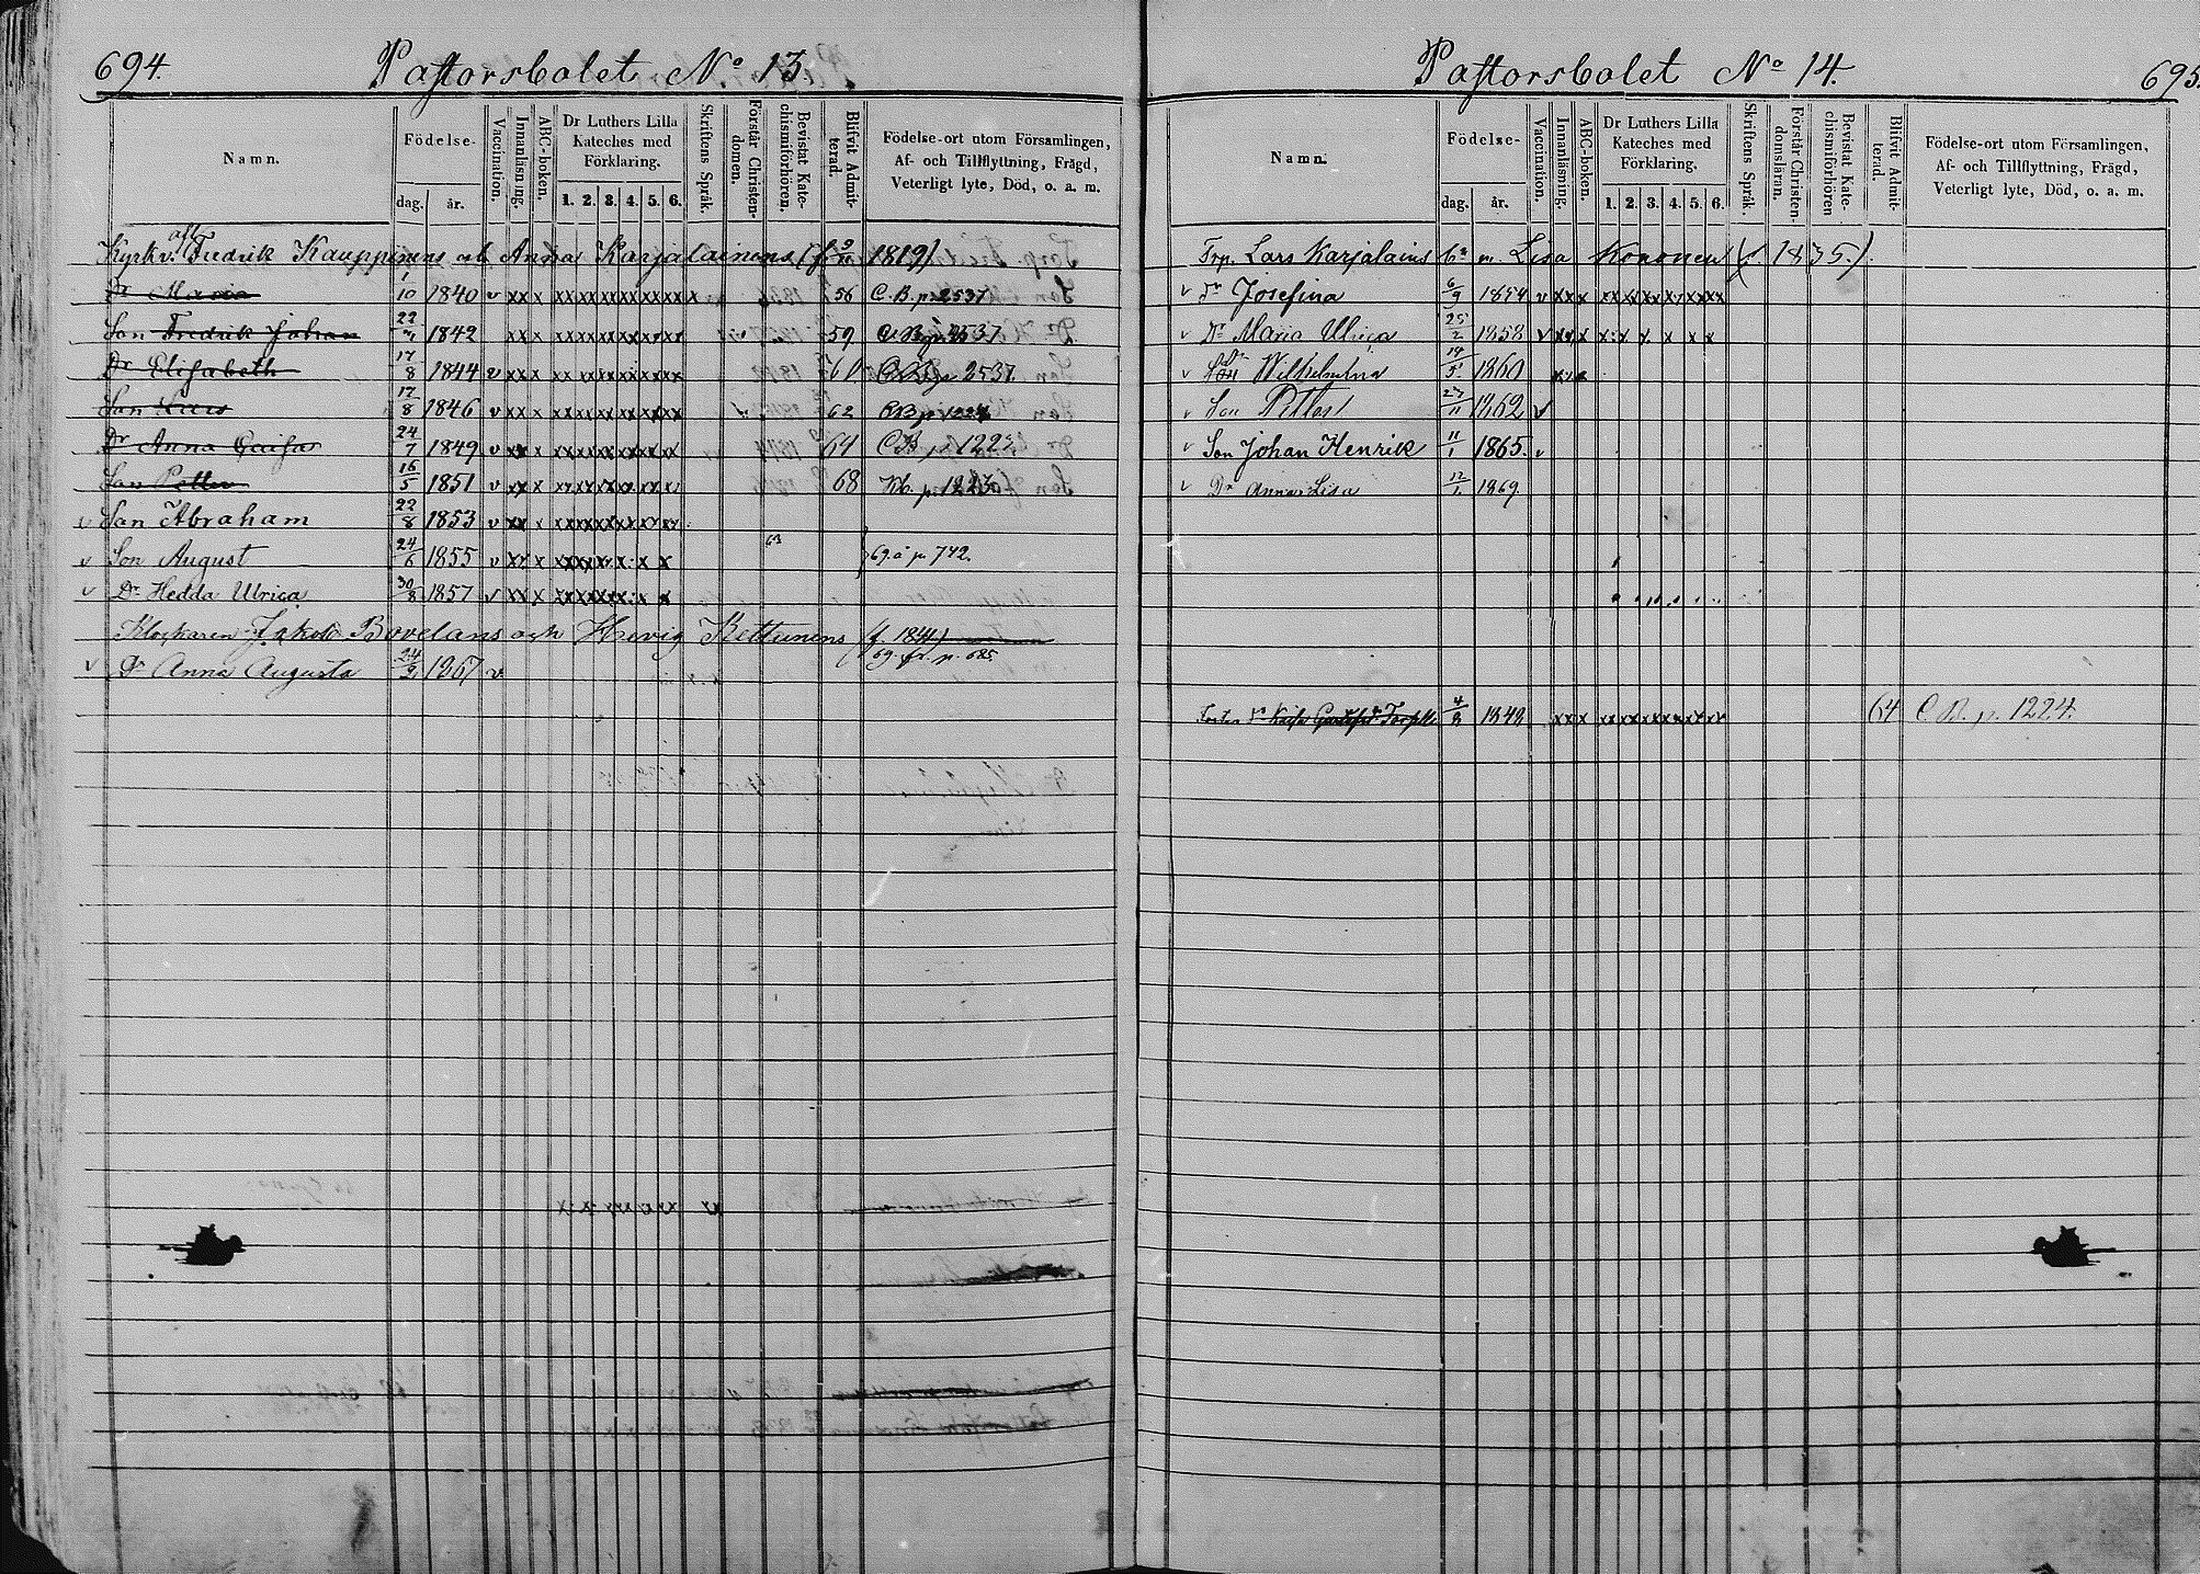 694. Pastorsbolet No 13.
Namn. Födelse- dag. år. Vaccination. Innanläsning. ABC-boken. Dr Luthers Lilla Kateches med Förklaring. 1. 2. 3. 4. 5. 6. Skriftens Språk. Förstår Christen-domen. Bevistat Kate-chismiförhören. Blifvit Admit-terad. Födelse-ort utom Församlingen, Af- och Tillflyttning, Frägd, Veterligt lyte, Död, o. a. m.
Kyrkv. Fredrik Kauppinens och Anna Karjalainens 1819)
Dr Maria 1/10 1840 v xx x 56 C. B. p. 2537
Son Fredrik Johan 1842 xx x 59 2537
Dr Elisabeth 17/8 1844 v xx x 2537.
Son 17/8 1846 v xx x 62 C B p. 1224
Dr Anna Caisa 24/7 1849 v xx x 64 C B p. 122
Son Petter 16/5 1851 v xx x 68 p. 1223
v Son Abraham 22/8 1853 v xx x
v Son August 24/6 1855 v xx x 69. å p. 742.
v Dr Hedda Ulrica 30/8 1857 v xx x
Klockaren Jakob Bovelans och Hevig Kettunens (f. 1841)
69. fr. p. 685.
v Dr Anna Augusta 24/2 1867 v
Pastorsbolet No 14. 695.
Namn. Födelse- dag. år. Vaccination. Innanläsning. ABC-boken. Dr Luthers Lilla Kateches med Förklaring. 1. 2. 3. 4. 5. 6. Skriftens Språk. Förstår Christen-domsläran. Bevistat Kate-chismiförhören Blifvit Admit-terad. Födelse-ort utom Församlingen, Af- och Tillflyttning, Frägd, Veterligt lyte, Död, o. a. m.
Torp. Lars Karjalains m. Lisa Kononen (f. 1835).
v Dr Josefina 6/9 1854 v xx x
v Dr Maria Ulrica 25/2 1858 v xx x
v Dr Wilhelmina 14/5 1860
v Son Petter 27/11 1862 v
v Son Johan Henrik 11/1 1865. v
v Dr Anna Lisa 12/1 1869.
Foster Dr Kaisa 4/8 1849 xx x 64 C. B. p. 1224.